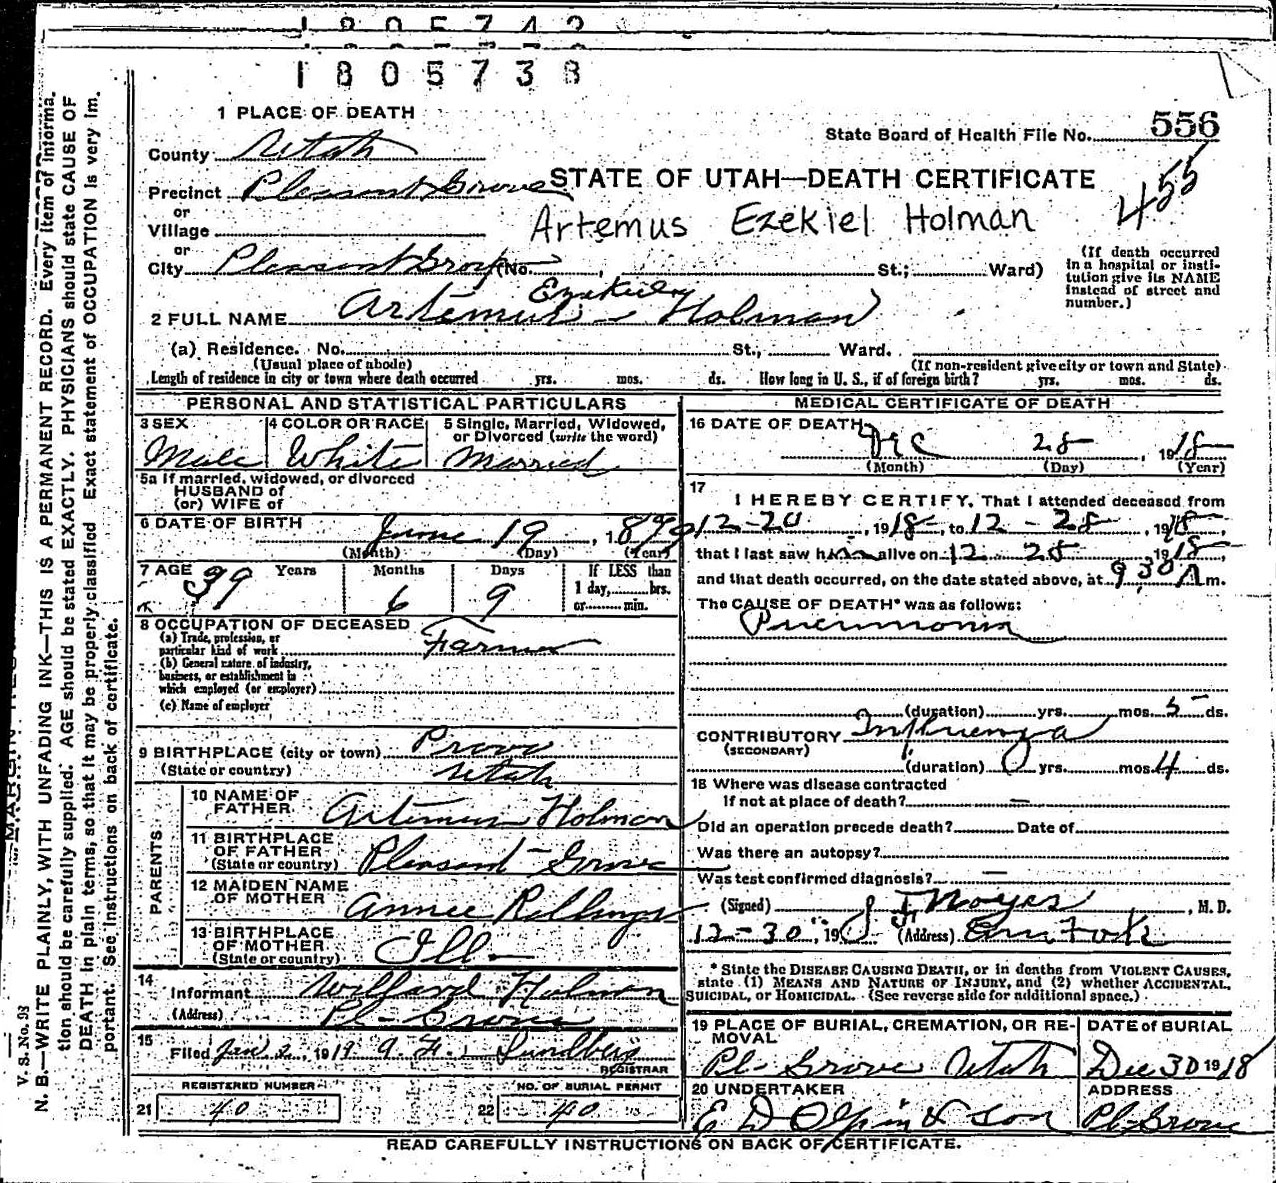 1805742
1805738
1 PLACE OF DEATH
State Board of Health File No. 556
County Utah
455
Precinct Pleasant Grove
STATE OF UTAH—DEATH CERTIFICATE
or
Village
Artemus Ezekiel Holman
or
City Pleasant Grove (No. , St.; Ward)
(If death occurred
in a hospital or insti-
tution give its NAME
instead of street and
number.)
Ezekiel
2 FULL NAME Artemus Holman
(a) Residence. No. St., Ward.
(Usual place of abode) (If non-resident give city or town and State)
Length of residence in city or town where death occurred yrs. mos. ds. How long in U. S., if of foreign birth? yrs. mos. ds.
PERSONAL AND STATISTICAL PARTICULARS
3 SEX
Male
4 COLOR OR RACE
White
5 Single, Married, Widowed,
or Divorced (write the word)
Married
5a If married, widowed, or divorced
HUSBAND of
(or) WIFE of
6 DATE OF BIRTH June 19, 1879
(Month) (Day) (Year)
7 AGE 39 Years
Months 6
Days 9
If LESS than
1 day, hrs.
or min.
8 OCCUPATION OF DECEASED
(a) Trade, profession, or
particular kind of work Farmer
(b) General nature of industry,
business, or establishment in
which employed (or employer)
(c) Name of employer
9 BIRTHPLACE (city or town) Provo
(State or country) Utah
PARENTS
10 NAME OF
FATHER Artemus Holman
11 BIRTHPLACE
OF FATHER
(State or country) Pleasant Grove
12 MAIDEN NAME
OF MOTHER Annie
13 BIRTHPLACE
OF MOTHER
(State or country) Ill.
14
Informant Wilford Holman
(Address) Pl- Grove
15
Filed Jan 2, 1919 Lundberg
REGISTRAR
REGISTERED NUMBER
21 40
NO. OF BURIAL PERMIT
22 40
MEDICAL CERTIFICATE OF DEATH
16 DATE OF DEATH Dec 28, 1918
(Month) (Day) (Year)
17
I HEREBY CERTIFY, That I attended deceased from
12-20, 1918, to 12-28, 1918,
that I last saw him alive on 12 28, 1918,
and that death occurred, on the date stated above, at 9 30 A m.
The CAUSE OF DEATH* was as follows:
Pneumonia
(duration) yrs. mos. 5 ds.
CONTRIBUTORY Influenza
(SECONDARY)
(duration) yrs. mos. 4 ds.
18 Where was disease contracted
If not at place of death? —
Did an operation precede death? Date of
Was there an autopsy?
Was test confirmed diagnosis? —
(Signed) Noyes, M. D.
12-30, 19 (Address) Am Fork
* State the DISEASE CAUSING DEATH, or in deaths from VIOLENT CAUSES,
state (1) MEANS AND NATURE OF INJURY, and (2) whether ACCIDENTAL,
SUICIDAL, or HOMICIDAL. (See reverse side for additional space.)
19 PLACE OF BURIAL, CREMATION, OR RE-
MOVAL
Pl- Grove Utah
DATE of BURIAL
Dec 30 1918
20 UNDERTAKER
E D Olpin & Son
ADDRESS
Pl- Grove
READ CAREFULLY INSTRUCTIONS ON BACK OF CERTIFICATE.
V. S. No. 98
N. B.—WRITE PLAINLY, WITH UNFADING INK—THIS IS A PERMANENT RECORD. Every item of informa-
tion should be carefully supplied. AGE should be stated EXACTLY. PHYSICIANS should state CAUSE OF
DEATH in plain terms, so that it may be properly classified. Exact statement of OCCUPATION is very im-
portant. See instructions on back of certificate.